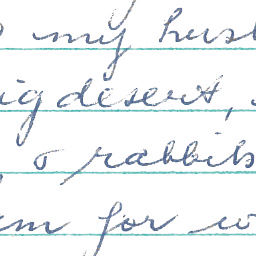 my husb
ig desert,
o rabbits
em for w